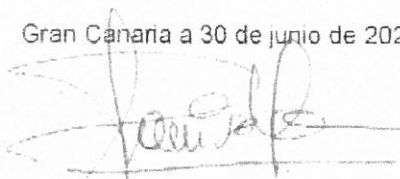 Gran Canaria a 30 de junio de 202